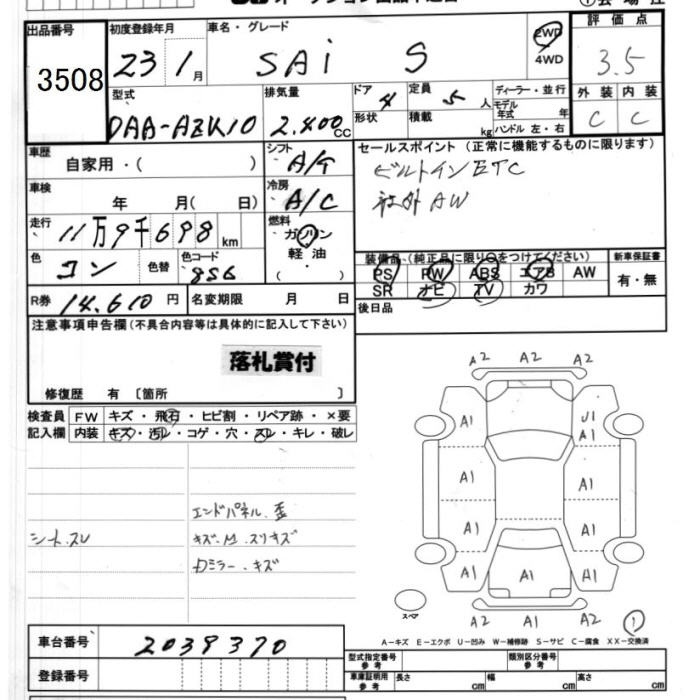 出品番号
3508
初度登録年月
23 1月
車名・グレード
SAi S
2WD
4WD
評価点
3.5
外装 内装
C C
型式
DAA-AZK10
排気量
2.400cc
ドア 4
形状
定員 5人
積載 kg
ディーラー・並行
モデル年式 年
ハンドル 左・右
車歴
自家用・( )
シフト
A/T
セールスポイント(正常に機能するものに限ります)
ビルトインETC
社外AW
車検
年 月( 日)
冷房
A/C
走行
11万9千698km
燃料
ガソリン
軽油
( )
色
コン
色替
色コード
8S6
装備品(純正品に限り○をつけてください)
PS PW ABS エアB AW
SR ナビ TV カワ
新車保証書
有・無
R券 14.610円
名変期限 月 日
後日品
注意事項申告欄(不具合内容等は具体的に記入して下さい)
落札賞付
修復歴 有 〔箇所 〕
検査員
記入欄
FW キズ・飛石・ヒビ割・リペア跡・×要
内装 キズ・汚レ・コゲ・穴・スレ・キレ・破レ
シートスレ
エンドパネル歪
キズ.M.スリキズ
Dミラーキズ
A2 A2 A2
A1 U1
A1
A1 A1
A1 A1
A1 A1 A1
A2 A1 A2
スペア
1
A-キズ E-エクボ U-凹み W-補修跡 S-サビ C-腐食 XX-交換済
車台番号 2039370
登録番号
型式指定番号
参考
類別区分番号
参考
車庫証明用
参考
長さ cm
幅 cm
高さ cm